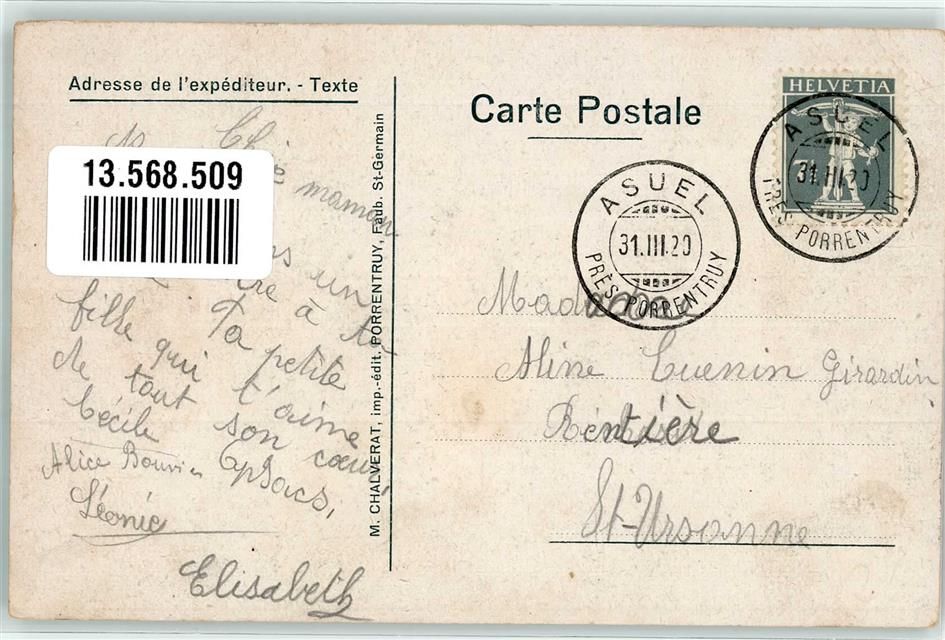 Adresse de l'expéditeur. - Texte
Chère maman
un
à ta
fille qui
Ta petite
de tout t'aime
Cécile son cœur
Alice Bouvier
Léonie
Elisabeth
M. CHALVERAT, imp.-édit. PORRENTRUY, Faub. St-Germain
13.568.509
Carte Postale
HELVETIA
ASUEL
31.III.20
PRÈS PORRENTRUY
ASUEL
31.III.20
PRÈS PORRENTRUY
Madame
Aline Cuenin Girardin
Rentière
St-Ursanne